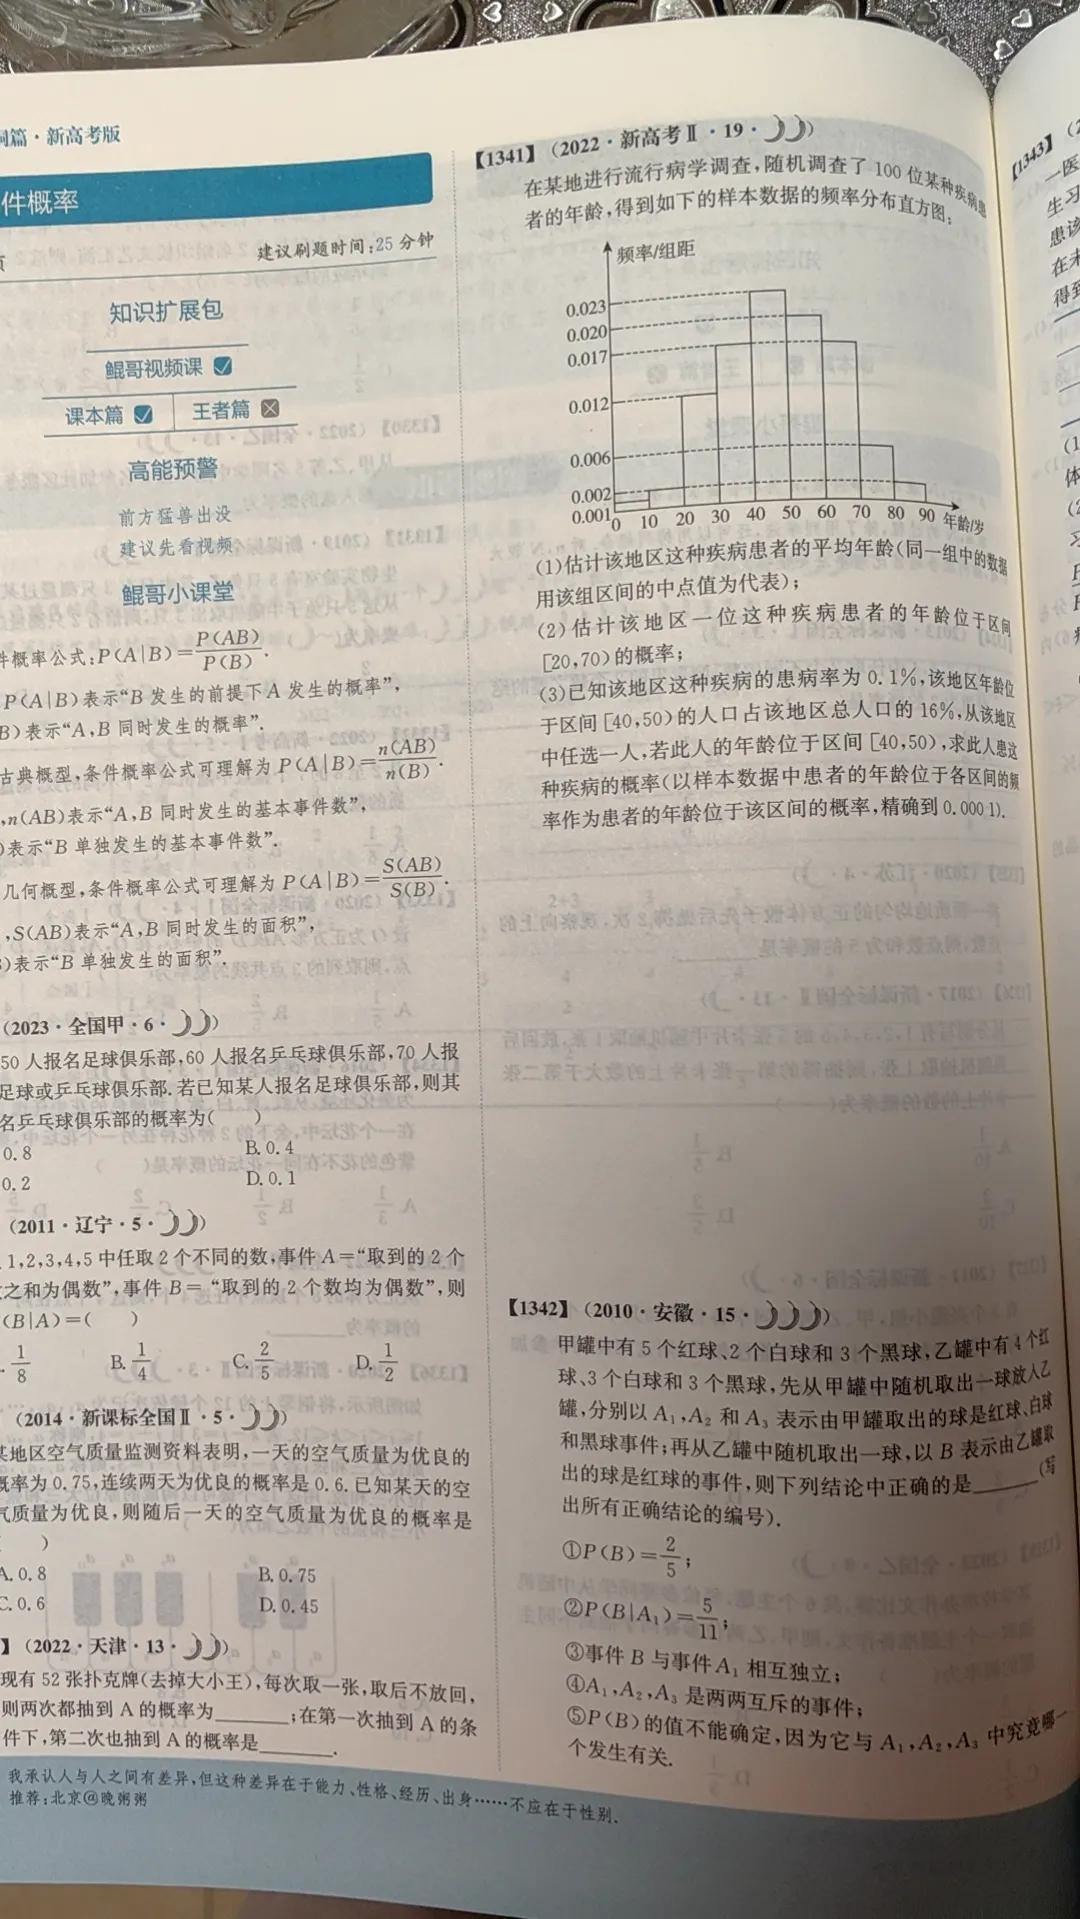 词篇·新高考版
件概率
建议刷题时间:25分钟
知识扩展包
鲲哥视频课
课本篇 王者篇
高能预警
前方猛兽出没
建议先看视频
鲲哥小课堂
件概率公式:P(A|B)=P(AB)/P(B).
P(A|B)表示“B发生的前提下A发生的概率”,
B)表示“A,B同时发生的概率”.
古典概型,条件概率公式可理解为P(A|B)=n(AB)/n(B).
,n(AB)表示“A,B同时发生的基本事件数”,
)表示“B单独发生的基本事件数”.
几何概型,条件概率公式可理解为P(A|B)=S(AB)/S(B).
,S(AB)表示“A,B同时发生的面积”,
)表示“B单独发生的面积”.
(2023·全国甲·6·)
50人报名足球俱乐部,60人报名乒乓球俱乐部,70人报
足球或乒乓球俱乐部.若已知某人报名足球俱乐部,则其
名乒乓球俱乐部的概率为( )
0.8 B.0.4
0.2 D.0.1
(2011·辽宁·5·)
1,2,3,4,5中任取2个不同的数,事件A=“取到的2个
之和为偶数”,事件B=“取到的2个数均为偶数”,则
(B|A)=( )
1/8 B.1/4 C.2/5 D.1/2
(2014·新课标全国Ⅱ·5·)
某地区空气质量监测资料表明,一天的空气质量为优良的
概率为0.75,连续两天为优良的概率是0.6.已知某天的空
气质量为优良,则随后一天的空气质量为优良的概率是
)
A.0.8 B.0.75
C.0.6 D.0.45
】(2022·天津·13·)
现有52张扑克牌(去掉大小王),每次取一张,取后不放回,
则两次都抽到A的概率为______;在第一次抽到A的条
件下,第二次也抽到A的概率是______.
我承认人与人之间有差异,但这种差异在于能力、性格、经历、出身……不应在于性别.
推荐:北京@晚粥粥
【1341】(2022·新高考Ⅱ·19·)
在某地进行流行病学调查,随机调查了100位某种疾病患
者的年龄,得到如下的样本数据的频率分布直方图:
频率/组距
0.023
0.020
0.017
0.012
0.006
0.002
0.001
0 10 20 30 40 50 60 70 80 90 年龄/岁
(1)估计该地区这种疾病患者的平均年龄(同一组中的数据
用该组区间的中点值为代表);
(2)估计该地区一位这种疾病患者的年龄位于区间
[20,70)的概率;
(3)已知该地区这种疾病的患病率为0.1%,该地区年龄位
于区间[40,50)的人口占该地区总人口的16%,从该地区
中任选一人,若此人的年龄位于区间[40,50),求此人患这
种疾病的概率(以样本数据中患者的年龄位于各区间的频
率作为患者的年龄位于该区间的概率,精确到0.0001).
【1342】(2010·安徽·15·)
甲罐中有5个红球、2个白球和3个黑球,乙罐中有4个红
球、3个白球和3个黑球,先从甲罐中随机取出一球放入乙
罐,分别以A₁,A₂和A₃表示由甲罐取出的球是红球、白球
和黑球事件;再从乙罐中随机取出一球,以B表示由乙罐取
出的球是红球的事件,则下列结论中正确的是______(写
出所有正确结论的编号).
①P(B)=2/5;
②P(B|A₁)=5/11;
③事件B与事件A₁相互独立;
④A₁,A₂,A₃是两两互斥的事件;
⑤P(B)的值不能确定,因为它与A₁,A₂,A₃中究竟哪一
个发生有关.
【1343】
一医
生习
患该
在未
得到
(1
体
(2